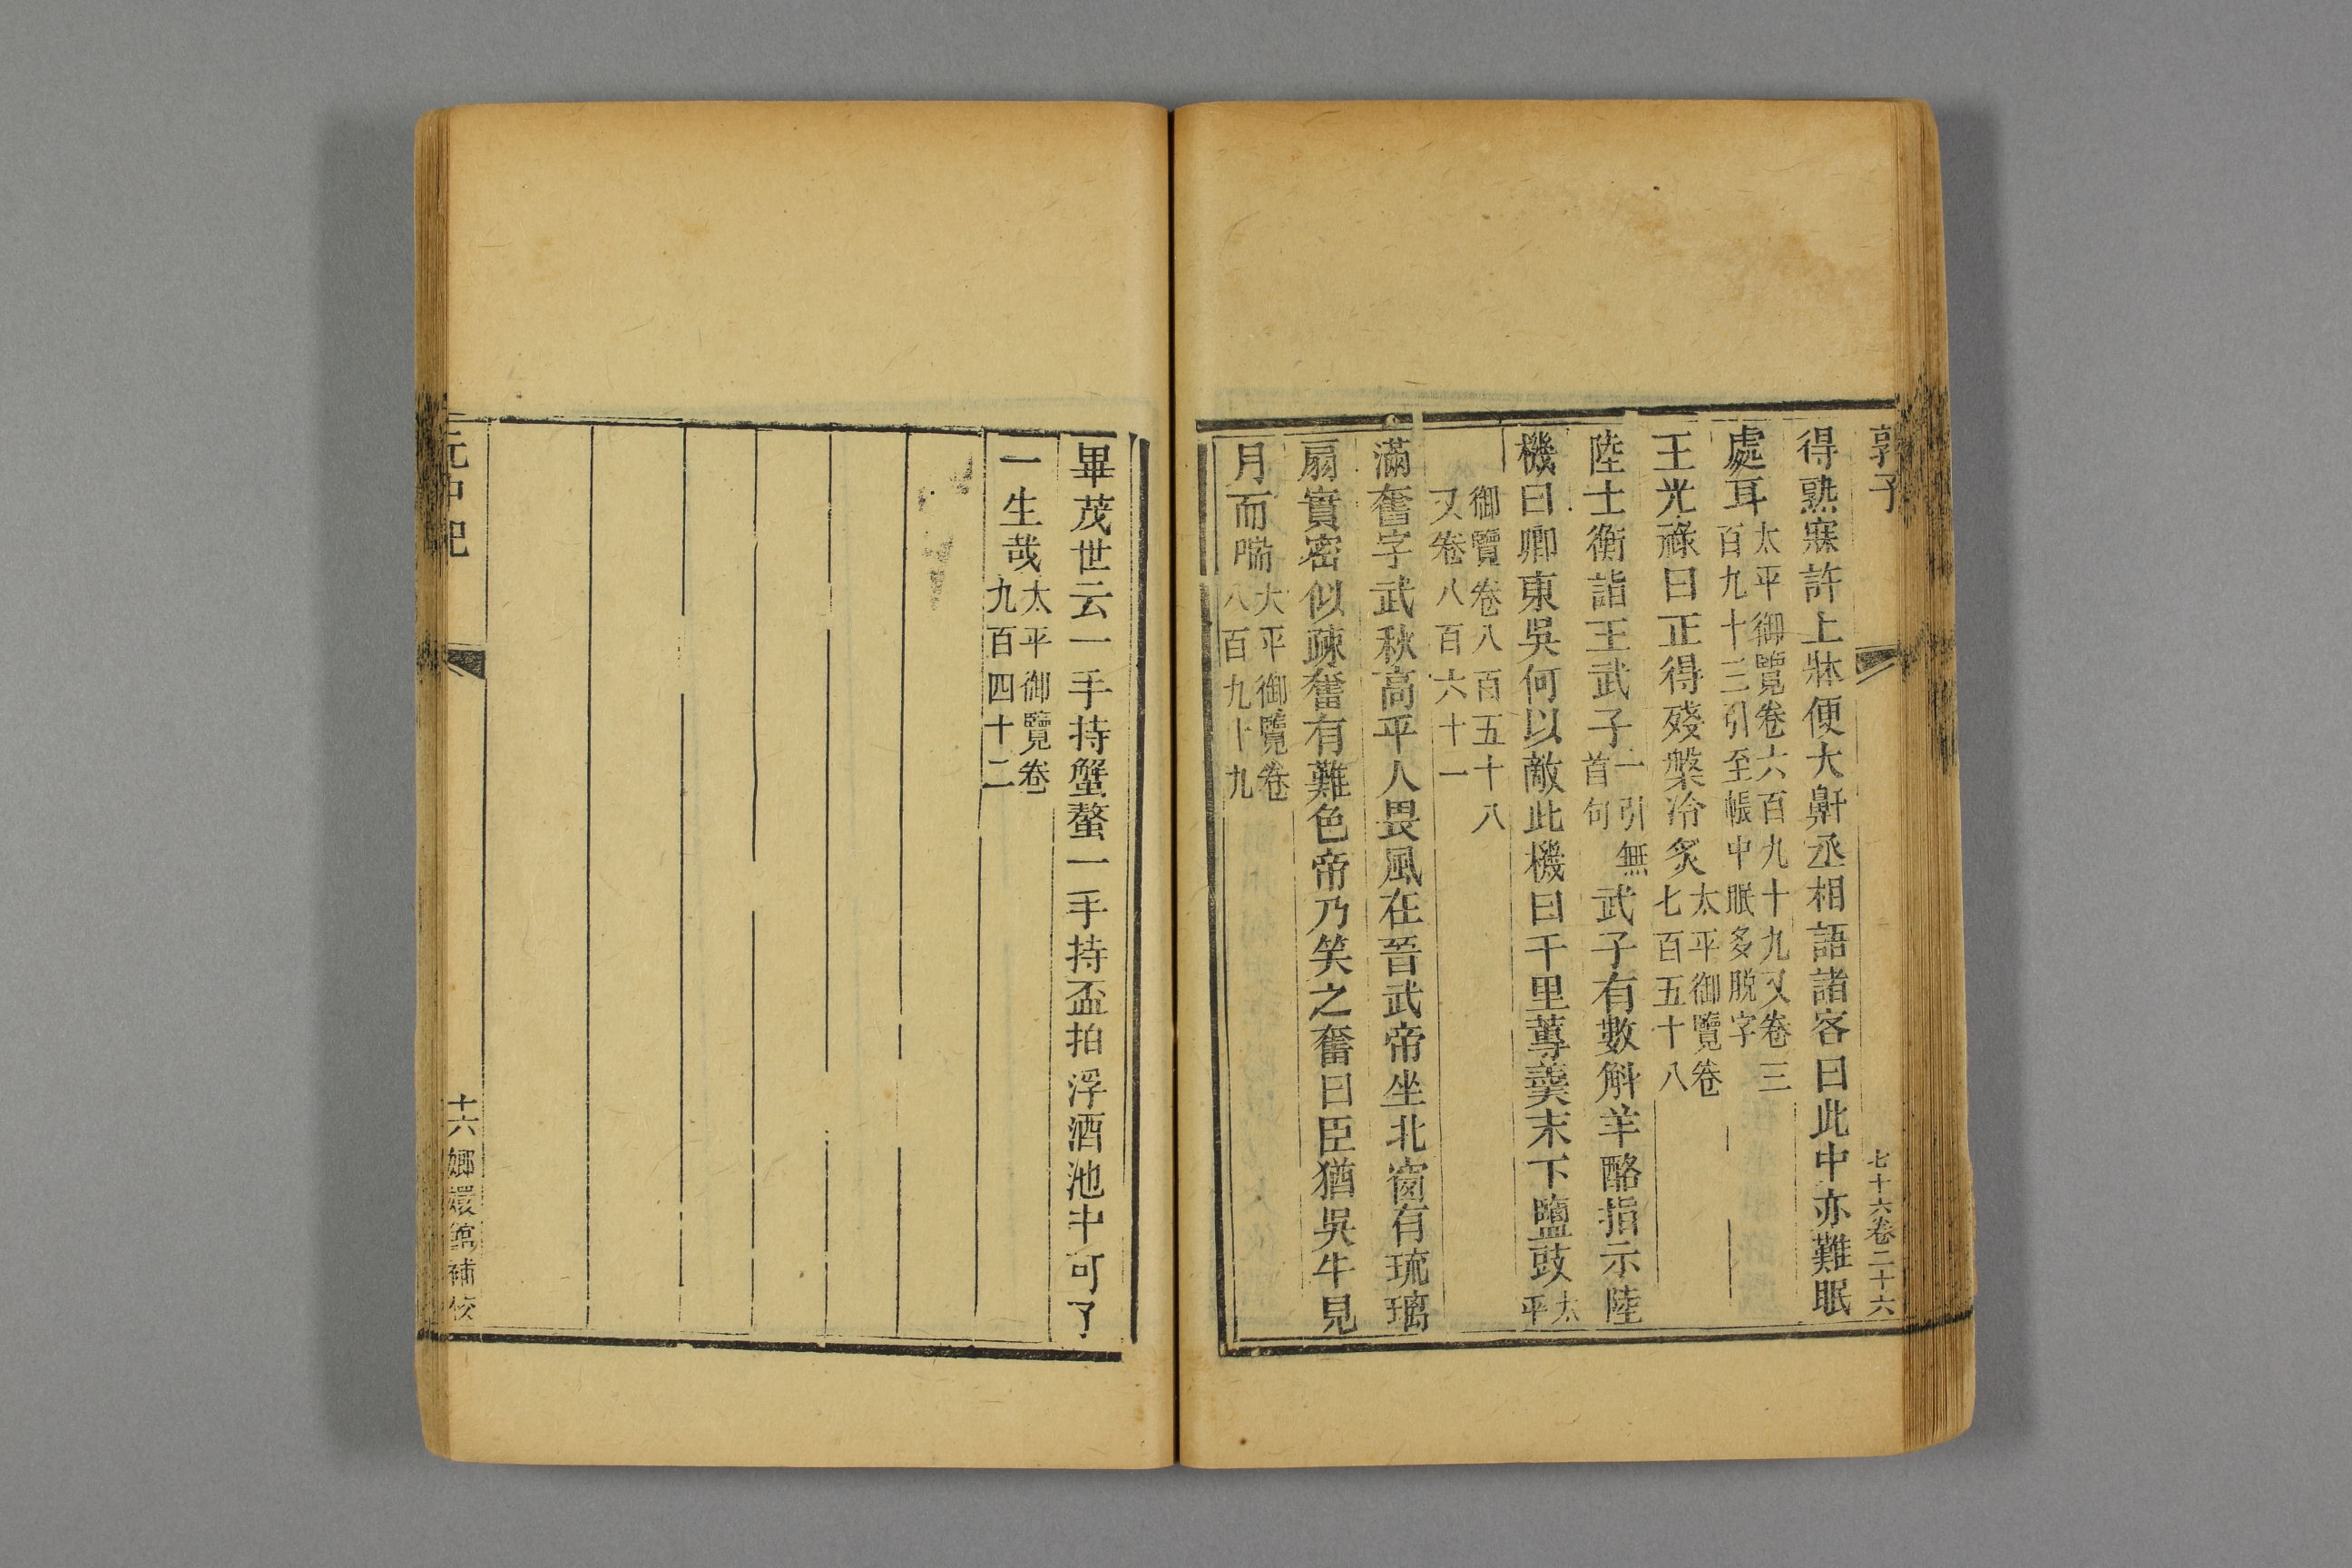 郭子
七十六卷二十六
得熟寐許上牀便大鼾丞相語諸客曰此中亦難眠
處耳太平御覽卷六百九十九又卷三百九十三引至帳中眠多脫字
王光祿曰正得殘槃冷炙太平御覽卷七百五十八
陸士衡詣王武子一引無首句武子有數斛羊酪指示陸
機曰卿東吳何以敵此機曰千里蓴羹末下鹽豉太平
御覽卷八百五十八又卷八百六十一
滿奮字武秋高平人畏風在晉武帝坐北窗有琉璃
扇實密似疎奮有難色帝乃笑之奮曰臣猶吳牛見
月而喘太平御覽卷八百九十九
畢茂世云一手持蟹螯一手持盃拍浮酒池中可了
一生哉太平御覽卷九百四十二
元中記
十六
嫏嬛館補校